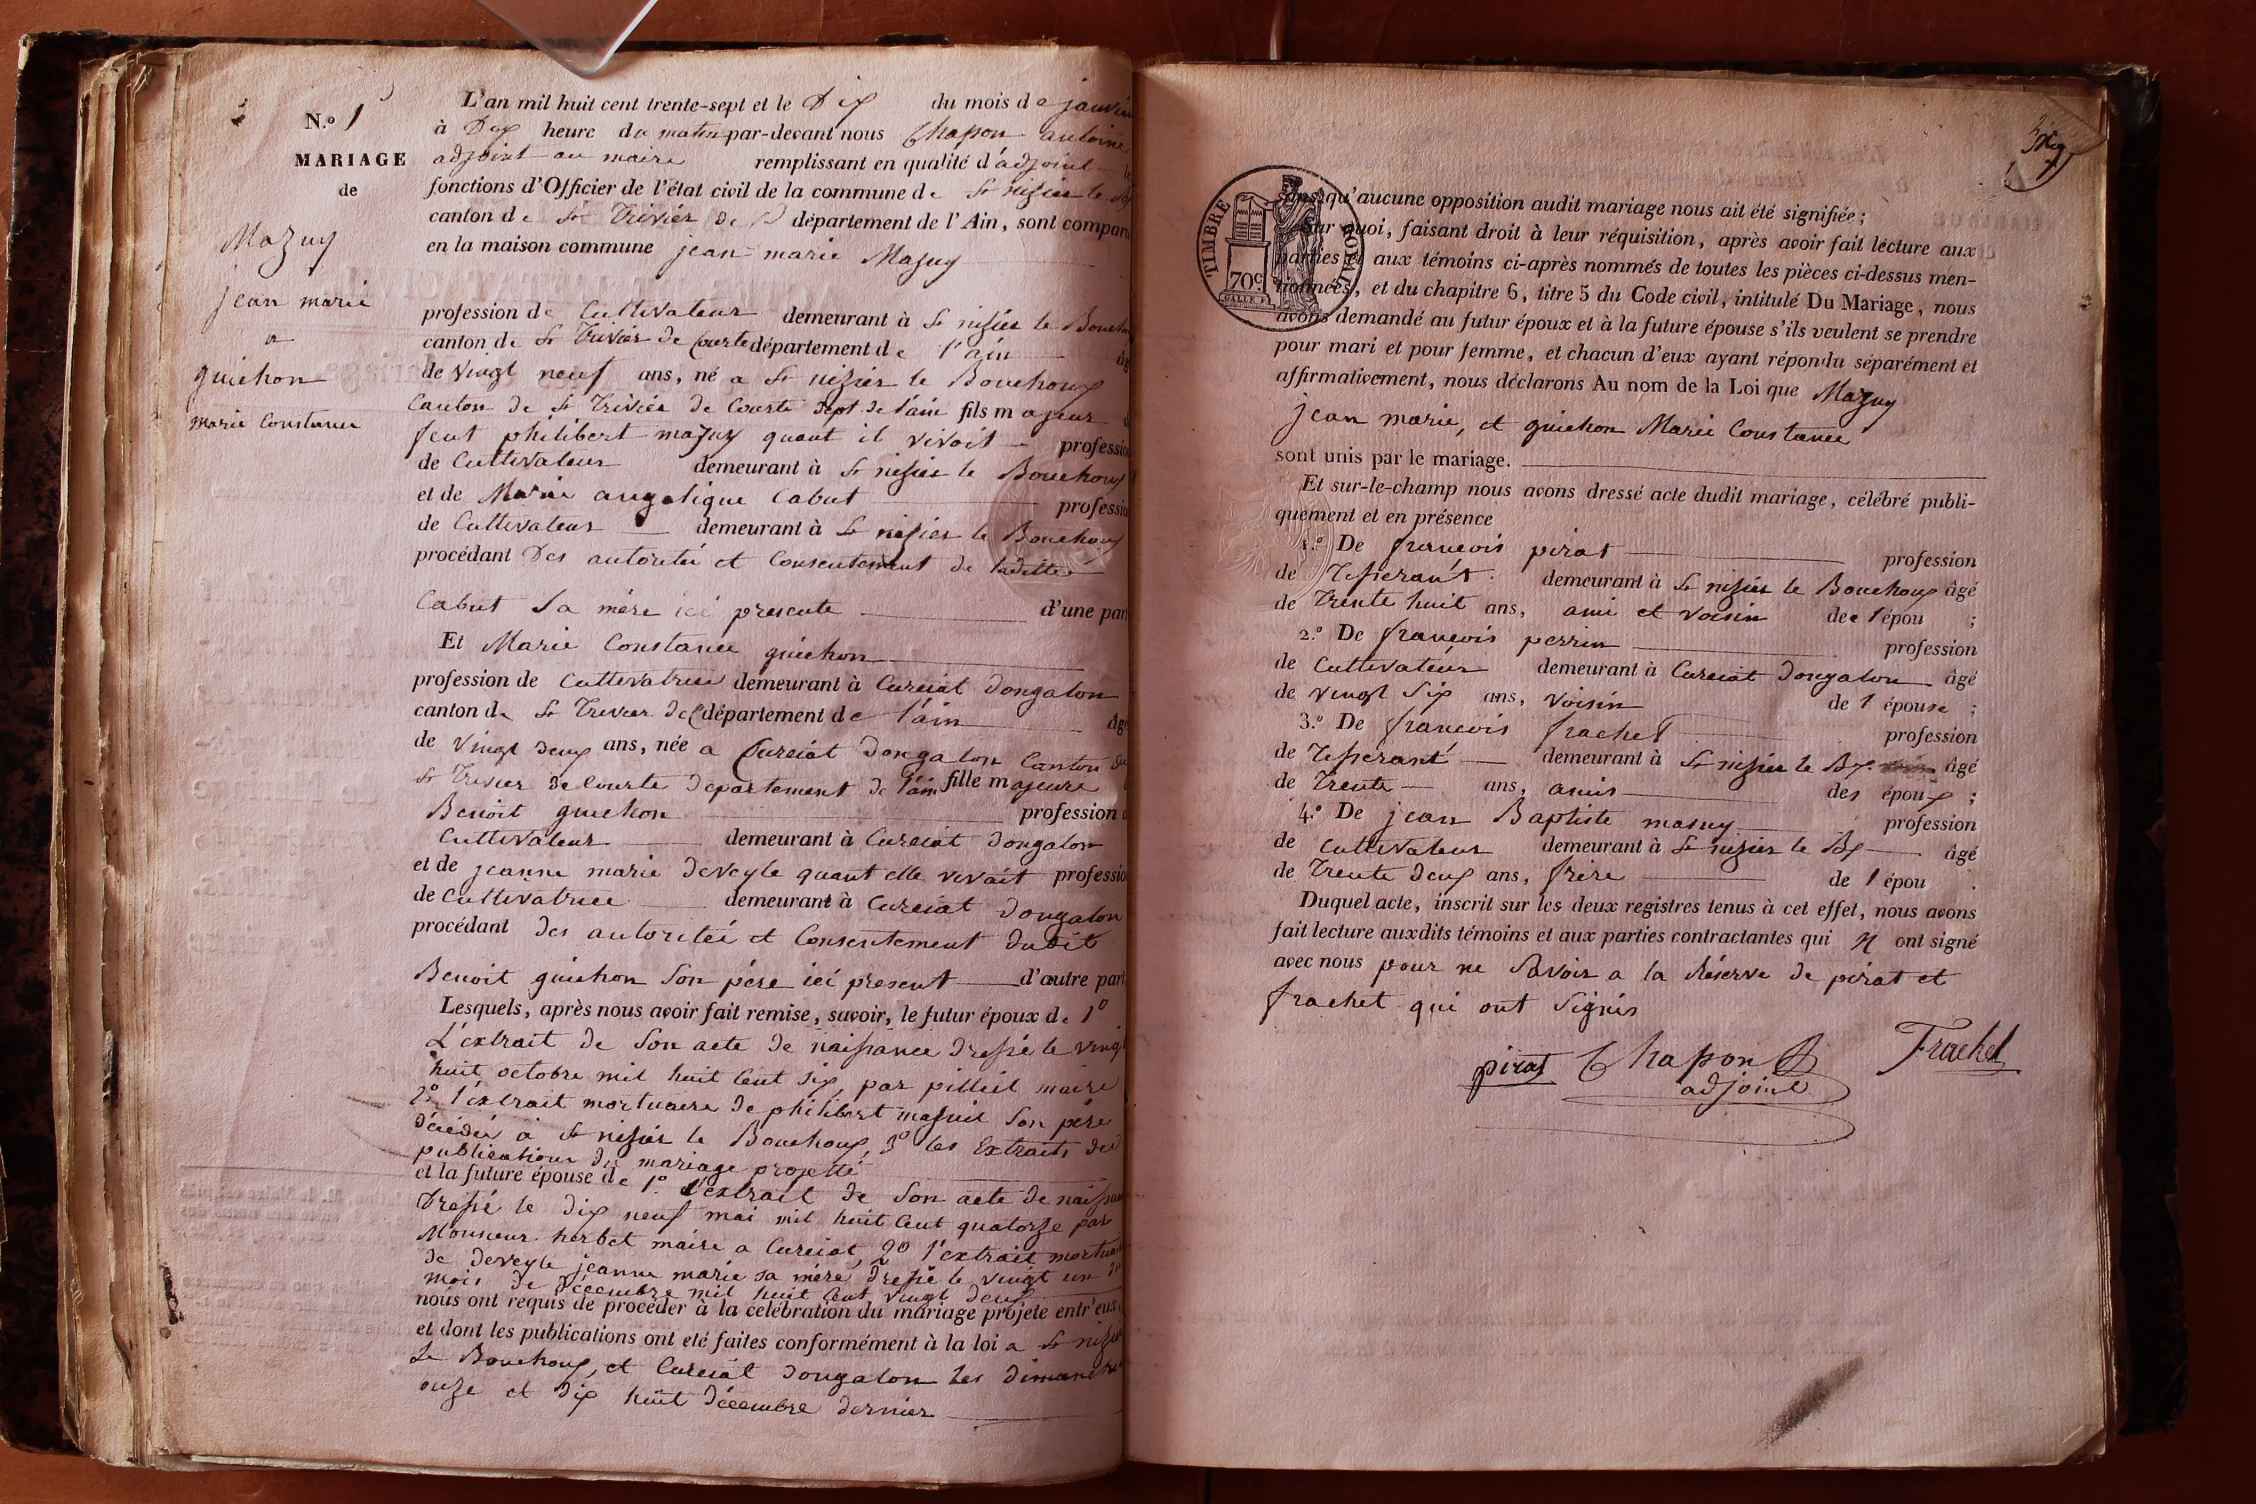 N.o 1
MARIAGE
de
Mazuy
jean marie
a
guichon
marie Constance
L'an mil huit cent trente-sept et le Dix du mois de janvier
à Dix heure du matin par-devant nous Chapon antoine
adjoint au maire remplissant en qualité d'adjoint
fonctions d'Officier de l'état civil de la commune de St nizier le
canton de St Trivier de C département de l'Ain, sont compar
en la maison commune jean marie Mazuy
profession de Cultivateur demeurant à St nizier le Bouchoux
canton de St Trivier de Courte département de l'ain âg
de vingt neuf ans, né a St nizier le Bouchoux
Canton de St Trivier de Courte dept de l'ain fils majeur
feut philibert mazuy quant il vivoit profession
de Cultivateur demeurant à St nizier le Bouchoux
et de Marie angelique Cabut profession
de Cultivateur demeurant à St nizier le Bouchoux
procédant Des autorité et Consentement de laditte
Cabut Sa mére ici presente d'une part
Et Marie Constance guichon
profession de Cultivatrice demeurant à Curciat Dongalon
canton de St Trivier de C département de l'ain âgé
de vingt deux ans, née a Curciat Dongalon Canton de
St Trivier de Courte departement de l'ain fille majeure
Benoit guichon profession
Cultivateur demeurant à Curciat Dongalon
et de jeanne marie deveyle quant elle vivait profession
de Cultivatrice demeurant à Curciat Dongalon
procédant des autoritée et Consentement dudit
Benoit guichon Son pére ici present d'autre part
Lesquels, après nous avoir fait remise, savoir, le futur époux de 1o
L'extrait de Son acte de naissance dressé le vingt
huit octobre mil huit Cent Six, par maire
2o l'extrait mortuaire de philibert Son pére
décédé a St nizier le Bouchoux, 3o les Extraits des
publications du mariage projetté
et la future épouse de 1o l'extrait de Son acte de naissance
Dressé le dix neuf mai mil huit Cent quatorze par
Monsieur herbet maire a Curciat, 2o l'extrait mortuaire
de deveyle jeanne marie sa mére, dressé le vingt un du
mois de décembre mil huit Cent vingt deux
nous ont requis de procéder à la célébration du mariage projeté entr'eux
et dont les publications ont été faites conformément à la loi a St nizier
Le Bouchoux, et Curciat dongalon les dimanches
onze et dix huit décembre dernier
TIMBRE ROYAL
70c
sans qu'aucune opposition audit mariage nous ait été signifiée;
Sur quoi, faisant droit à leur réquisition, après avoir fait lecture aux
parties et aux témoins ci-après nommés de toutes les pièces ci-dessus men-
tionnées, et du chapitre 6, titre 5 du Code civil, intitulé Du Mariage, nous
avons demandé au futur époux et à la future épouse s'ils veulent se prendre
pour mari et pour femme, et chacun d'eux ayant répondu séparément et
affirmativement, nous déclarons Au nom de la Loi que Mazuy
jean marie, et guichon Marie Constance
sont unis par le mariage.
Et sur-le-champ nous avons dressé acte dudit mariage, célébré publi-
quement et en présence
1.o De francois pirat profession
de Tisserant demeurant à St nizier le Bouchoux âgé
de Trente huit ans, ami et voisin de l'épou ;
2.o De francois perrin profession
de Cultivateur demeurant à Curciat Dongalon âgé
de vingt Six ans, voisin de l'épouse ;
3.o De francois frachet profession
de Tisserant demeurant à St nizier le Bx âgé
de Trente ans, amis des époux ;
4.o De jean Baptiste mazuy profession
de Cultivateur demeurant à St nizier le Bx âgé
de Trente deux ans, frére de l'épou .
Duquel acte, inscrit sur les deux registres tenus à cet effet, nous avons
fait lecture auxdits témoins et aux parties contractantes qui N ont signé
avec nous pour ne Savoir a la Réserve de pirat et
frachet qui ont Signés
pirat Chapon Frachet
adjoint